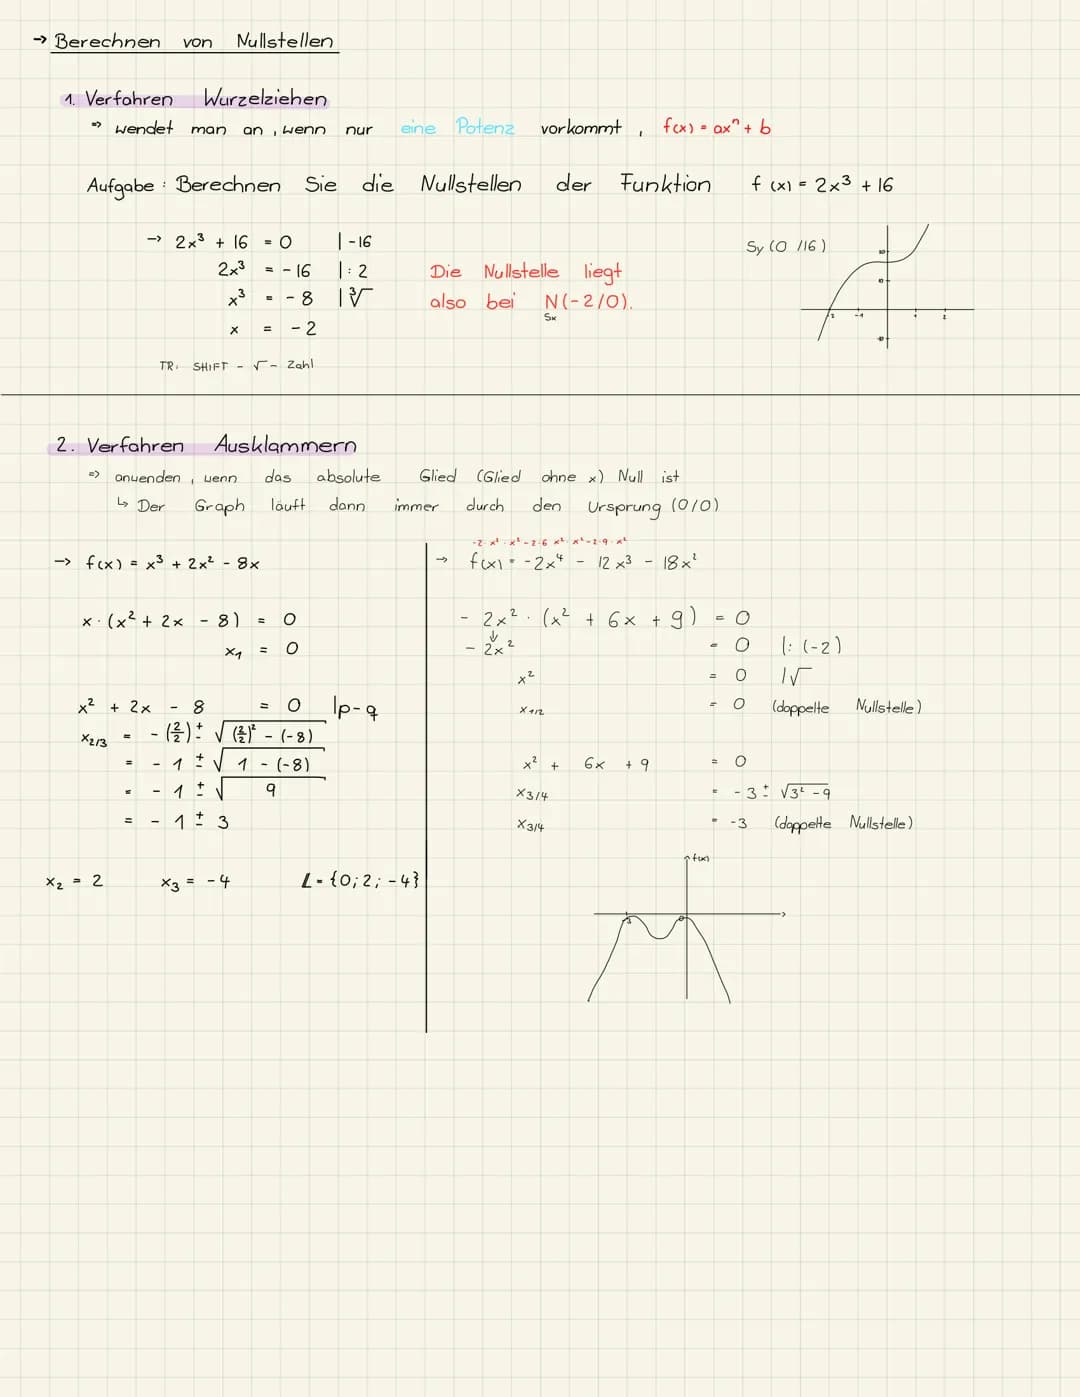 → Berechnen von Nullstellen
1. Verfahren Wurzelziehen
=> wendet man an, wenn nur eine Potenz vorkommt, f(x) = axⁿ + b
Aufgabe: Berechnen Sie die Nullstellen der Funktion f(x) = 2x³ + 16
→ 2x³ + 16 = 0 | -16
2x³ = -16 | : 2
x³ = -8 | ∛
x = -2
TR: SHIFT - √ - Zahl
Die Nullstelle liegt
also bei N(-2/0).
Sx
Sy (0/16)
-2 -1 1 2
2. Verfahren Ausklammern
=> anwenden, wenn das absolute Glied (Glied ohne x) Null ist
↳ Der Graph läuft dann immer durch den Ursprung (0/0)
→ f(x) = x³ + 2x² - 8x
x · (x² + 2x - 8) = 0
x₁ = 0
x² + 2x - 8 = 0 | p-q
x₂/₃ = - (2/2) ± √(2/2)² - (-8)
= - 1 ± √1 - (-8)
= - 1 ± √9
= - 1 ± 3
x₂ = 2 x₃ = -4 L = {0; 2; -4}
-2 · x² · x² - 2 · 6 x² · x² - 2 · 9 · x²
→ f(x) = -2x⁴ - 12x³ - 18x²
- 2x² · (x² + 6x + 9) = 0
↓
- 2x² = 0 | : (-2)
x² = 0 | √
x₁/₂ = 0 (doppelte Nullstelle)
x² + 6x + 9 = 0
x₃/₄ = -3 ± √3² - 9
x₃/₄ = -3 (doppelte Nullstelle)
f(x)
-3 0